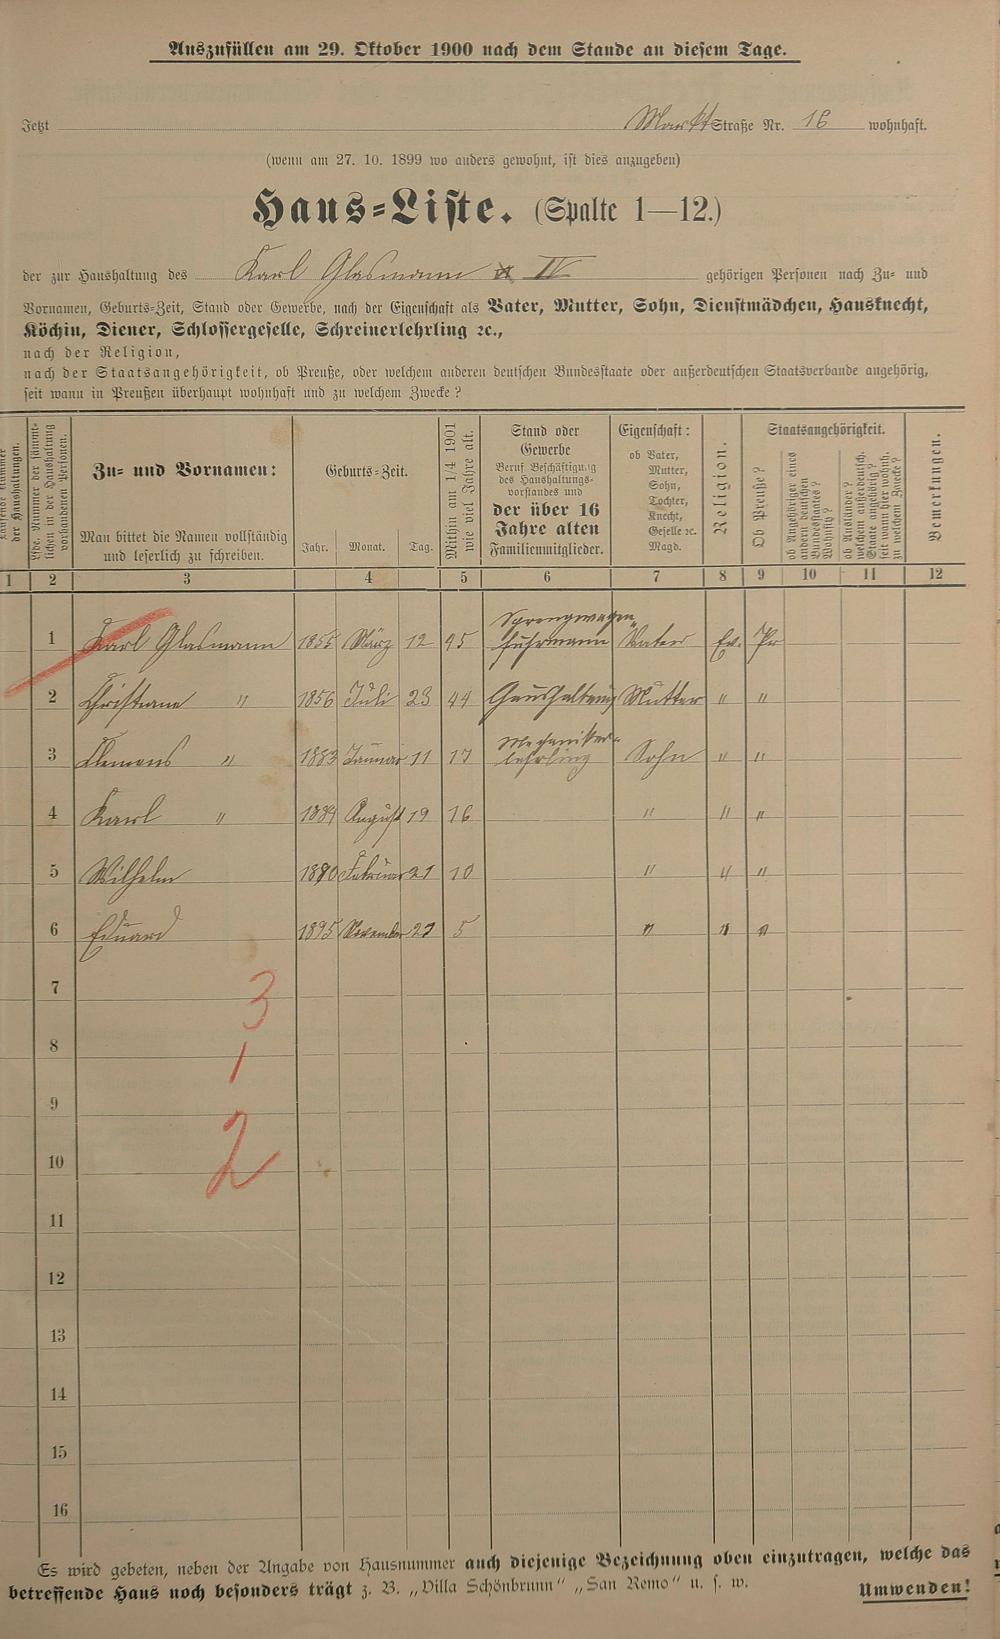 Auszufüllen am 29. Oktober 1900 nach dem Stande an diesem Tage.
Jetzt Markt Straße Nr. 16 wohnhaft.
(wenn am 27. 10. 1899 wo anders gewohnt, ist dies anzugeben)
Haus-Liste. (Spalte 1—12.)
der zur Haushaltung des Karl Glasmann IV gehörigen Personen nach Zu- und
Vornamen, Geburts-Zeit, Stand oder Gewerbe, nach der Eigenschaft als Vater, Mutter, Sohn, Dienstmädchen, Hausknecht,
Köchin, Diener, Schlossergeselle, Schreinerlehrling ꝛc.,
nach der Religion,
nach der Staatsangehörigkeit, ob Preuße, oder welchem anderen deutschen Bundesstaate oder außerdeutschen Staatsverbande angehörig,
seit wann in Preußen überhaupt wohnhaft und zu welchem Zwecke?
Laufende Nummer der Haushaltungen.
Lfde. Nummer der sämmtlichen in der Haushaltung vorhandenen Personen.
Zu- und Vornamen:
Man bittet die Namen vollständig
und leserlich zu schreiben.
Geburts-Zeit.
Jahr. Monat. Tag.
Mithin am 1/4 1901 wie viel Jahre alt.
Stand oder
Gewerbe
Beruf Beschäftigung
des Haushaltungs-
vorstandes und
der über 16
Jahre alten
Familienmitglieder.
Eigenschaft:
ob Vater,
Mutter,
Sohn,
Tochter,
Knecht,
Geselle ꝛc.
Magd.
Religion.
Staatsangehörigkeit.
Ob Preuße?
ob Angehöriger eines andern deutschen Bundesstaates? Wohnsitz?
ob Ausländer? welchem außerdeutsch. Staate angehörig? seit wann hier wohnh. zu welchem Zwecke?
Bemerkungen.
1 2 3 4 5 6 7 8 9 10 11 12
1 Karl Glasmann 1855 März 12 45 Sprengwagen-
fuhrmann Vater Ev. Pr
2 Christiane " 1856 Juli 23 44 Haushaltung Mutter " "
3 Clemens " 1883 Januar 11 17 Mechaniker-
lehrling Sohn " "
4 Karl " 1884 August 19 16 " " "
5 Wilhelm Februar 21 10 " " "
6 Eduard 1895 November 5 " " "
7
3
8
1
9
10
2
11
12
13
14
15
16
Es wird gebeten, neben der Angabe von Hausnummer auch diejenige Bezeichnung oben einzutragen, welche das
betreffende Haus noch besonders trägt z. B. „Villa Schönbrunn" „San Remo" u. s. w. Umwenden!